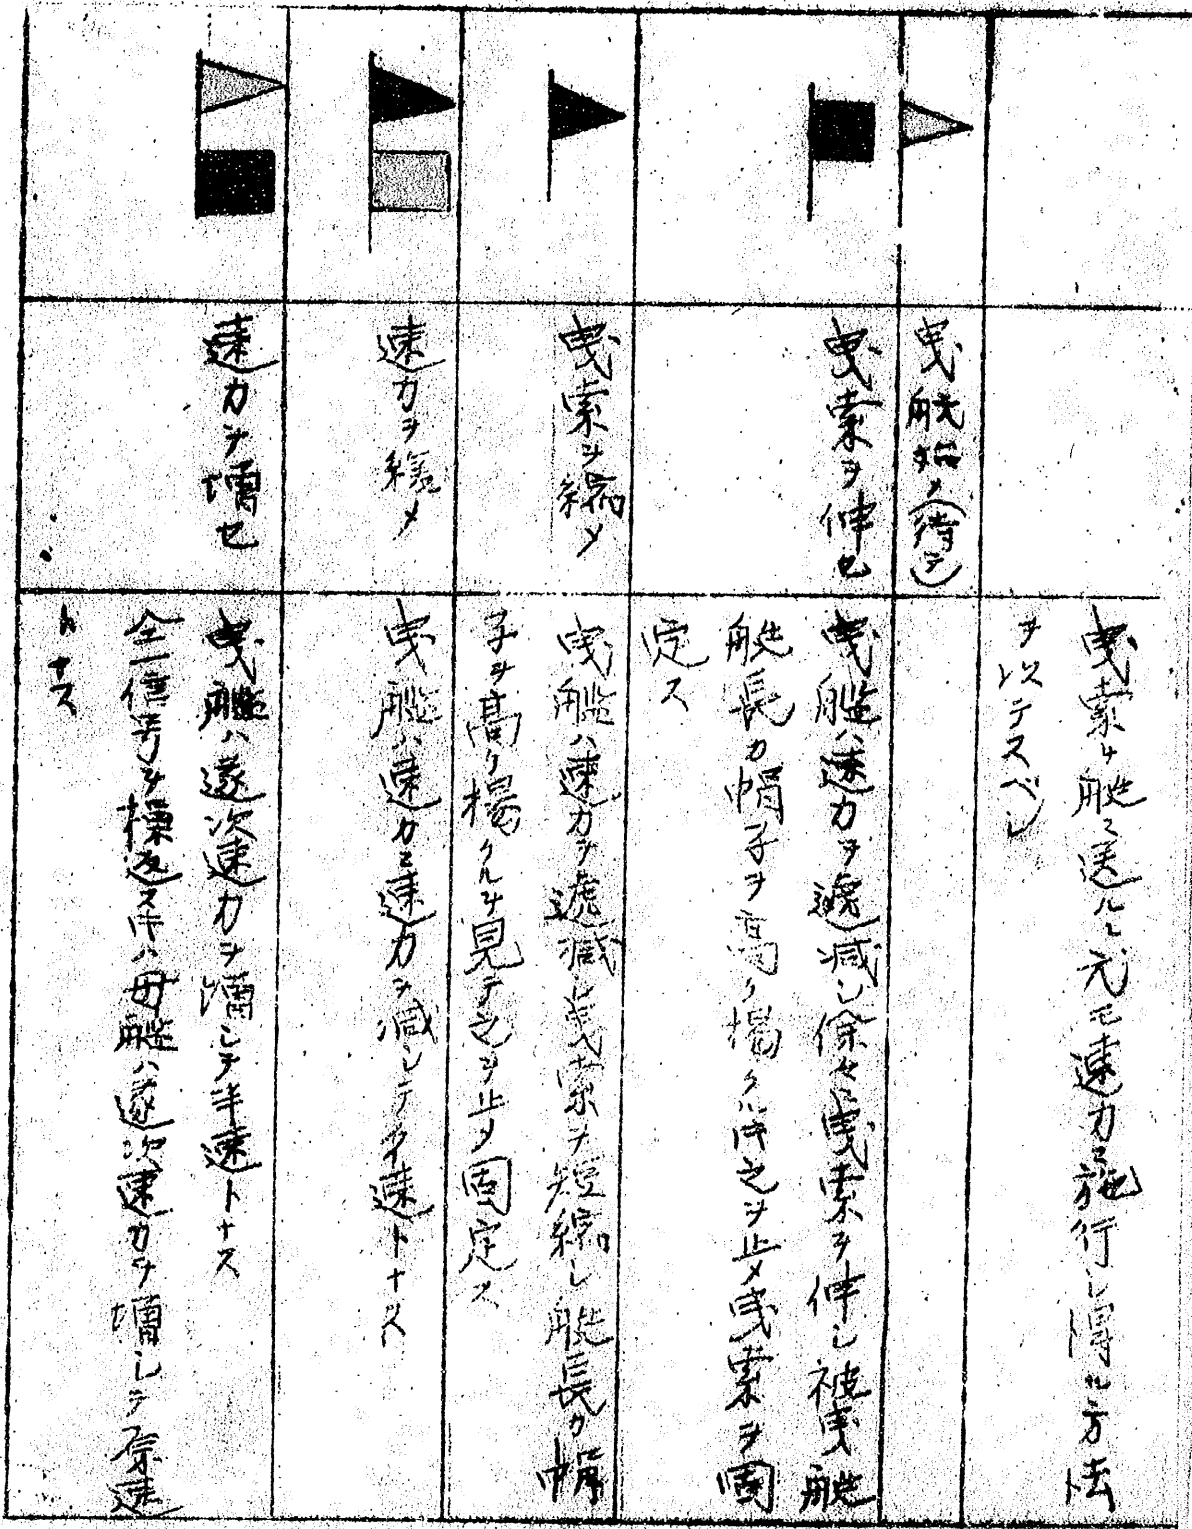 曳索ヲ艇ニ送ルニ尤モ速力施行シ得ル方法
ヲ以テスベシ
曳艇始メ(待テ)
曳索ヲ伸セ
曳艦ハ速力ヲ逓減シ徐々ニ曳索ヲ伸シ被曳艇
艇長カ帽子ヲ高ク揚クレハ之ヲ止メ曳索ヲ固
定ス
曳索ヲ縮メ
曳艦ハ速力ヲ逓減シ曳索ヲ短縮シ艇長カ帽
子ヲ高ク揚クルヲ見テ之ヲ止メ固定ス
速力ヲ緩メ
曳艦ハ速カニ速力ヲ減シテ 速トナス
速力ヲ増セ
曳艦ハ逐次速力ヲ増シテ半速トナス
仝一信号ヲ標返ス時ハ母艦ハ逐次速力ヲ増シテ原速
トナス